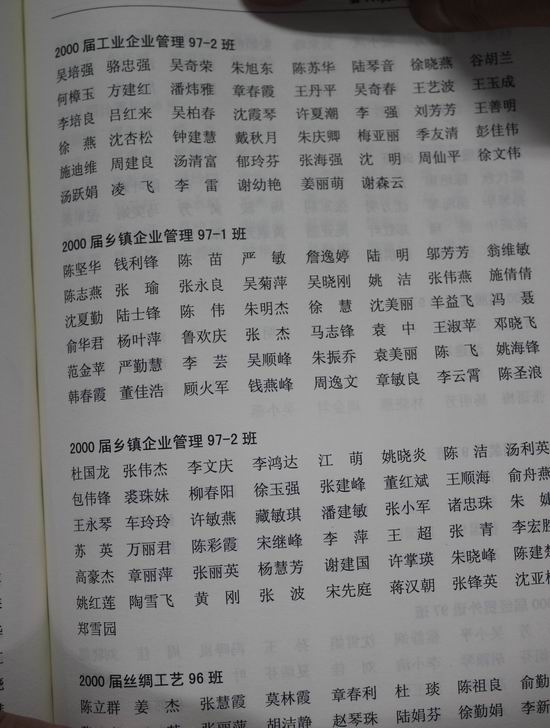 2000 届工业企业管理 97-2 班
吴培强 骆忠强 吴奇荣 朱旭东 陈苏华 陆琴音 徐晓燕 谷胡兰
何樟玉 方建红 潘炜雅 章春霞 王丹平 吴奇春 王艺波 王玉成
李培良 吕红来 吴柏春 沈霞琴 许夏潮 李 强 刘芳芳 王善明
徐 燕 沈杏松 钟建慧 戴秋月 朱庆卿 梅亚丽 季友清 彭佳伟
施迪维 周建良 汤清富 郁玲芬 张海强 沈 明 周仙平 徐文伟
汤跃娟 凌 飞 李 雷 谢幼艳 姜丽萌 谢森云
2000 届乡镇企业管理 97-1 班
陈坚华 钱利锋 陈 苗 严 敏 詹逸婷 陆 明 邬芳芳 翁维敏
陈志燕 张 瑜 张永良 吴菊萍 吴晓刚 姚 洁 张伟燕 施倩倩
沈夏勤 陆士锋 陈 伟 朱明杰 徐 慧 沈美丽 羊益飞 冯 聂
俞华君 杨叶萍 鲁欢庆 张 杰 马志锋 袁 中 王淑苹 邓晓飞
范金苹 严勤慧 李 芸 吴顺峰 朱振乔 袁美丽 陈 飞 姚海锋
韩春霞 董佳浩 顾火军 钱燕峰 周逸文 章敏良 李云霄 陈圣浪
2000 届乡镇企业管理 97-2 班
杜国龙 张伟杰 李文庆 李鸿达 江 萌 姚晓炎 陈 洁 汤利英
包伟锋 裘珠妹 柳春阳 徐玉强 张建峰 董红斌 王顺海 俞舟燕
王永琴 车玲玲 许敏燕 藏敏琪 潘建敏 张小军 诸忠珠 朱
苏 英 万丽君 陈彩霞 宋继峰 李 萍 王 超 张 青 李宏胜
高豪杰 章丽萍 张丽英 杨慧芳 谢建国 许掌瑛 朱晓峰 陈建
姚红莲 陶雪飞 黄 刚 张 波 宋先庭 蒋汉朝 张锋英 沈亚
郑雪园
2000 届丝绸工艺 96 班
陈立群 姜 杰 张慧霞 莫林霞 章春利 杜 琰 陈祖良 俞勤
张丽萍 胡洁静 赵琴珠 陆娟芬 徐勤娟 李新